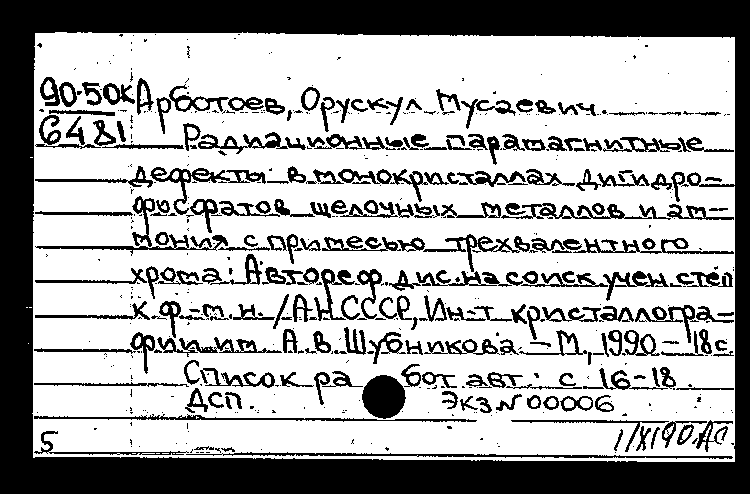 90-50к Арботоев, Орускул Мусаевич.
6481 Радиационные парамагнитные
дефекты в монокристаллах дигидро-
фосфатов щелочных металлов и ам-
мония с примесью трехвалентного
хрома: Автореф дис. на соиск учен. степ
к. ф.-м. н. /АН СССР, Ин-т кристаллогра-
фии им. А. В. Шубникова. - М., 1990 - 18 с.
Список работ авт.: с. 16-18.
ДСП. Экз N 00006.
5